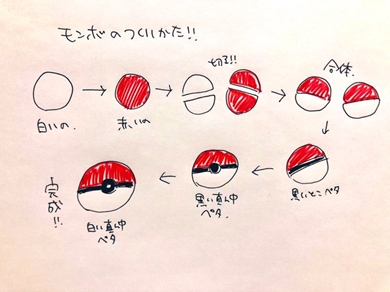 モンボのつくりかた!!
切る!!
合体.
白いの.
赤いの
黒いとこペタ
黒い真ん中
ペタ.
白い真ん中
ペタ
完成!!